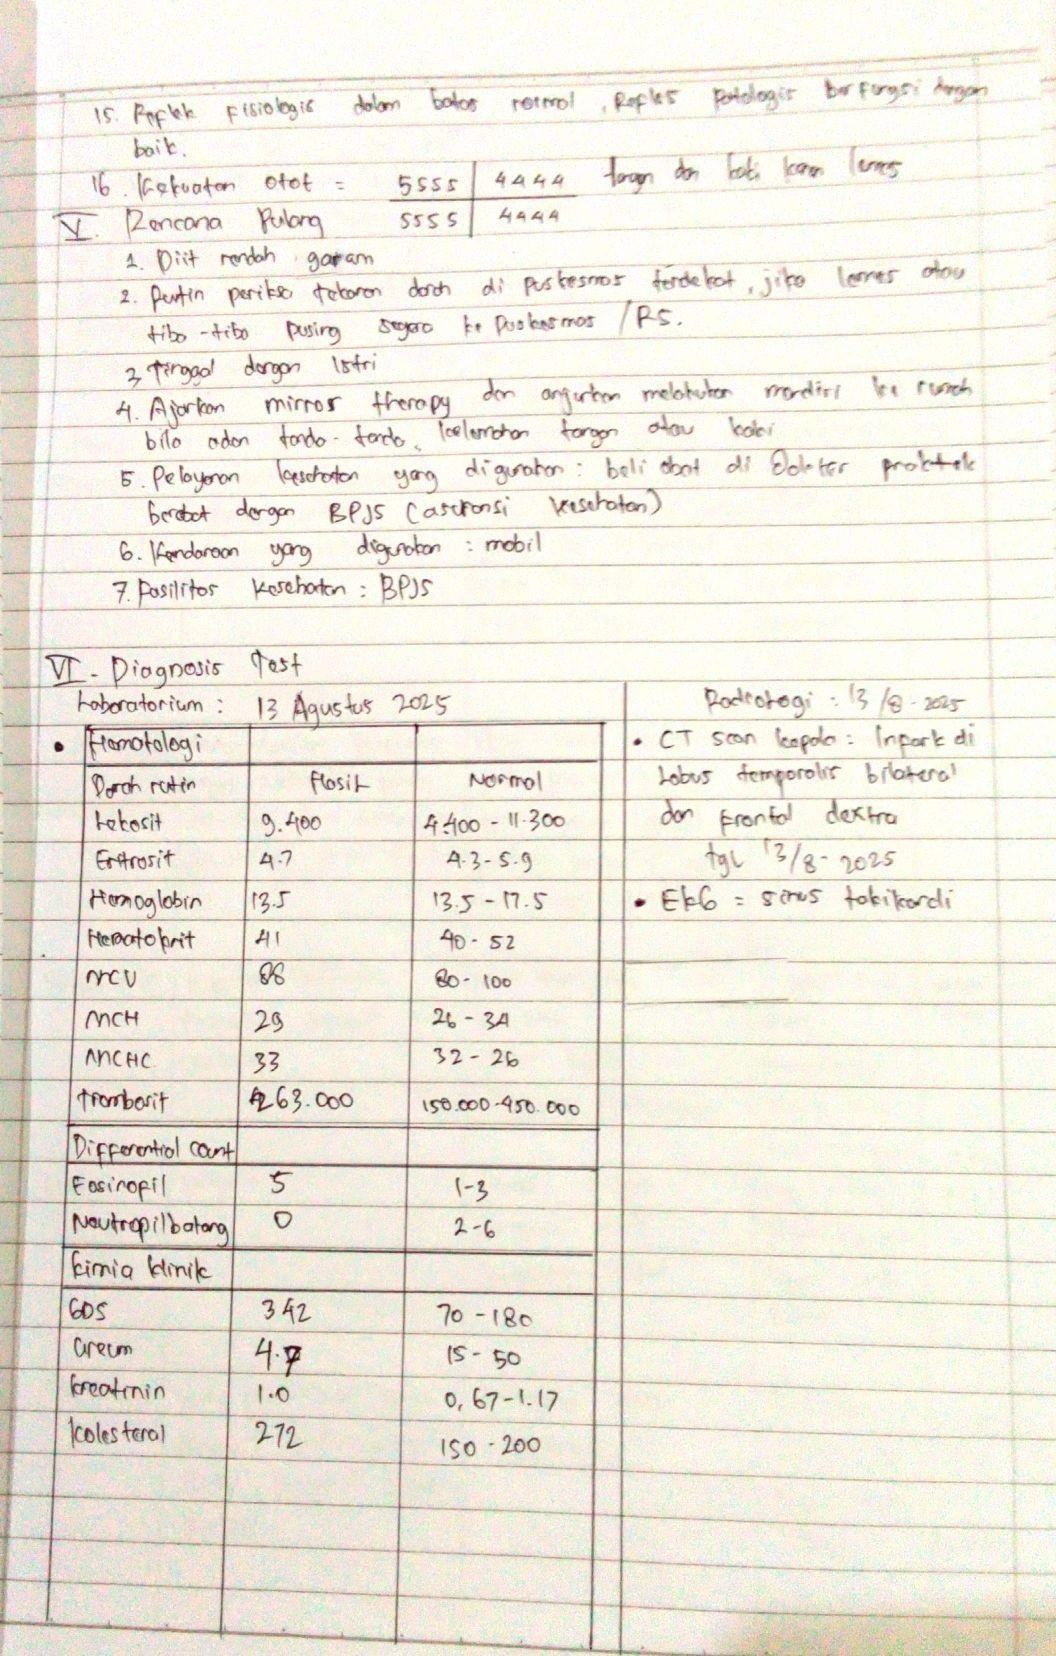 15. Reflek Fisiologis dalam batas normal, Refles Patologis berfungsi dengan
baik.
16. Kekuatan otot = 5555 | 4444 tangan dan kaki kanan lemes
5555 | 4444
V. Rencana Pulang
1. Diit rendah garam
2. Rutin periksa tekanan darah di puskesmas terdekat, jika lemes atau
tiba-tiba pusing segera ke Puskesmas /RS.
3. Tinggal dengan Istri
4. Ajarkan mirros therapy dan anjurkan melakukan mandiri ke rumah
bila adan tanda-tanda kelemahan tangan atau kaki
5. Pelayanan kesehatan yang digunakan : beli obat di Dokter praktek
berobat dengan BPJS (asuransi kesehatan)
6. Kendaraan yang digunakan : mobil
7. Fasilitas kesehatan : BPJS
VI - Diagnosis Test
Laboratorium : 13 Agustus 2025
• Hematologi
Darah rutin Hasil Normal
Lekosit 9.400 4.400 - 11.300
Eritrosit 4.7 4.3 - 5.9
Hemoglobin 13.5 13.5 - 17.5
Hematokrit 41 40 - 52
MCV 88 80 - 100
MCH 29 26 - 34
MCHC 33 32 - 26
Trombosit 263.000 150.000-450.000
Differential count
Eosinofil 5 1-3
Neutropil batang 0 2-6
Kimia klinik
GDS 342 70 - 180
Ureum 4.7 15 - 50
Kreatinin 1.0 0,67-1.17
Kolesterol 272 150 - 200
Radiologi : 13/8 - 2025
• CT scan kepala : Infark di
Lobus temporalis bilateral
dan frontal dextra
tgl 13/8 - 2025
• EKG = sinus takikardi